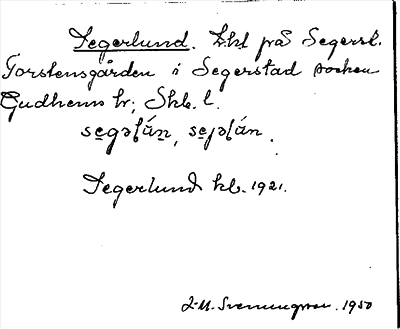 Segerlund. Lht på Segerst.
Torstensgården i Segerstad socken
Gudhems hr; Skb. l.
Segerlund kb. 1921.
J-M. Svenungsson. 1950